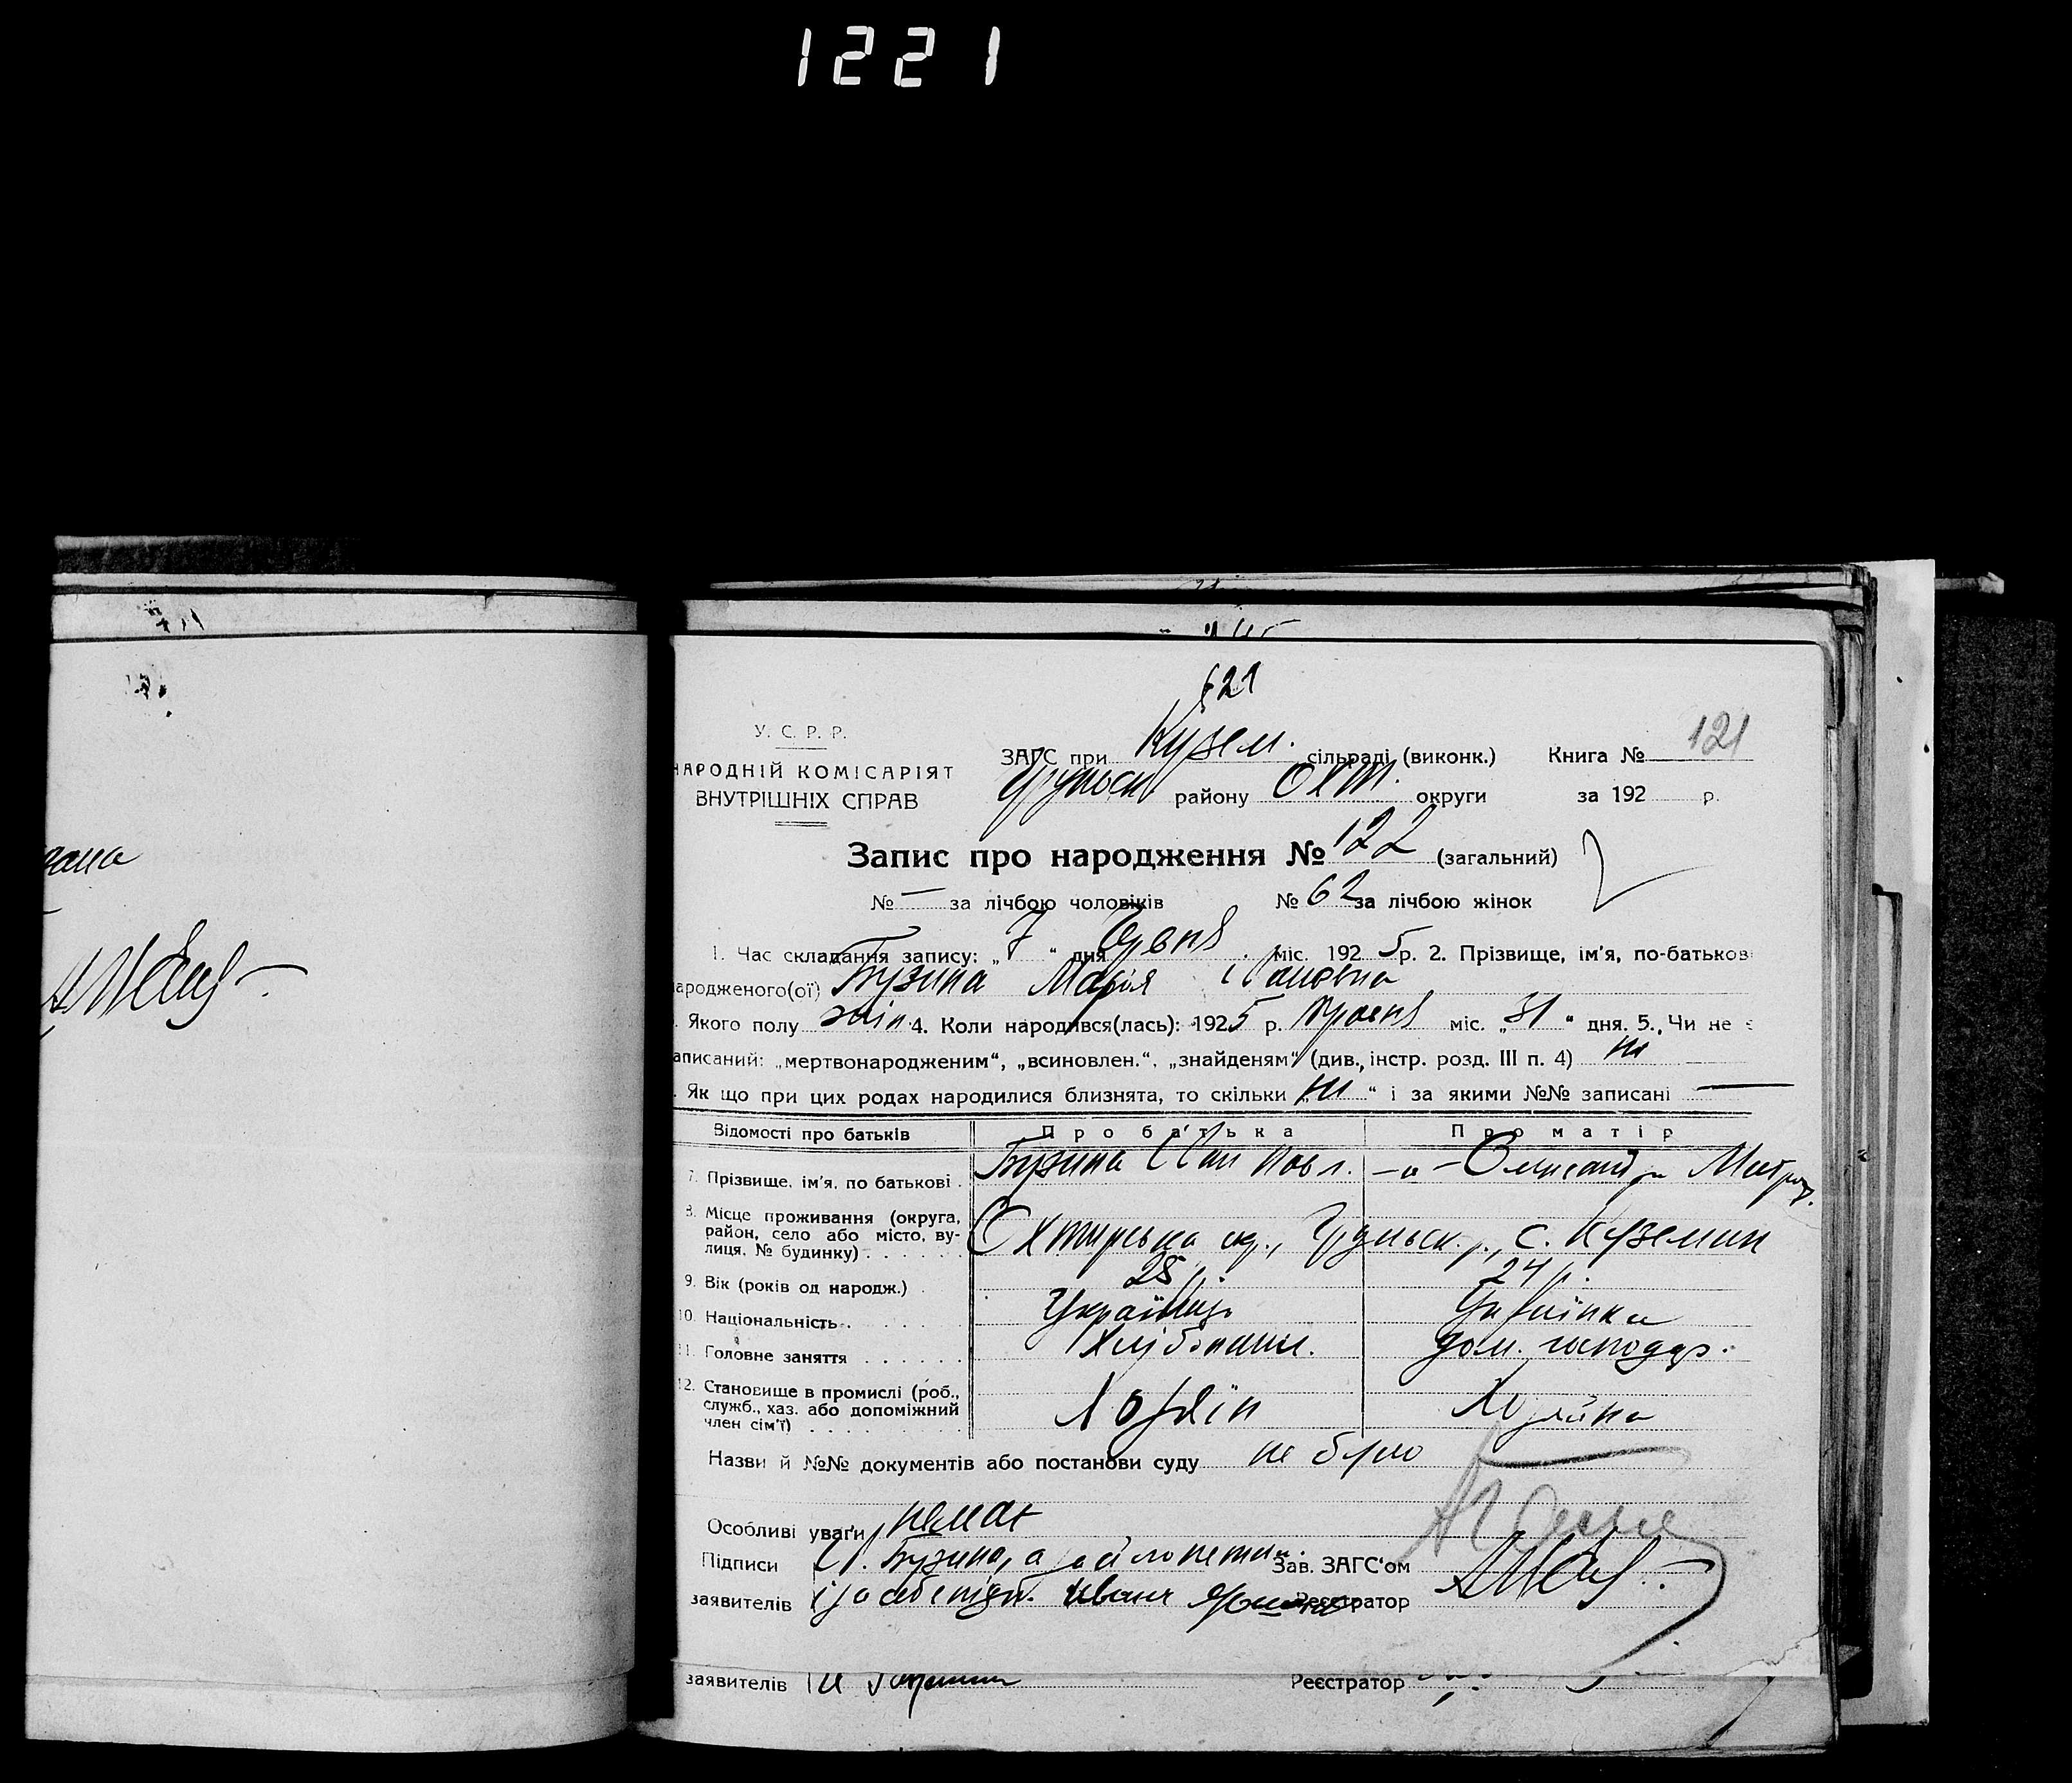 1221
621
121
У. С. Р. Р.
НАРОДНІЙ КОМІСАРІЯТ
ВНУТРІШНІХ СПРАВ
ЗАГС при Кузем. сільраді (виконк.) Книга №
району Охт. округи за 192 р.
Запис про народження № 122 (загальний)
№ — за лічбою чоловіків № 62 за лічбою жінок
1. Час складання запису: „ 7 “ дня міс. 192 5 р. 2. Прізвище, ім'я, по-батькові
народженого(ої) Бузина Марія Івановна
Якого полу жін. 4. Коли народився(лась): 1925 р. міс. „ 31 “ дня. 5. Чи не є
записаний: „мертвонародженим“, „всиновлен.“, „знайденям“ (див. інстр. розд. III п. 4) ні
Як що при цих родах народилися близнята, то скільки „ ні “ і за якими №№ записані —
Відомості про батьків Про батька Про матір
7. Прізвище, ім'я, по батькові . Бузина Іван Павл. —„—
8. Місце проживання (округа, район, село або місто, вулиця, № будинку) . Охтирська окр., с. Куземин
9. Вік (років од народж.) . 28 р. 24 р.
10. Національність . Українець Українка
11. Головне заняття . Хлібопаш. дом. господар.
12. Становище в промислі (роб., служб., хаз. або допоміжний член сім'ї) . Хозяїн Хозяйка
Назви й №№ документів або постанови суду не було
Особливі уваги немає
Підписи І. Бузина, а за його неписьм. Зав. ЗАГС'ом
заявителів і за себе підп. Иван Реєстратор
заявителів Реєстратор